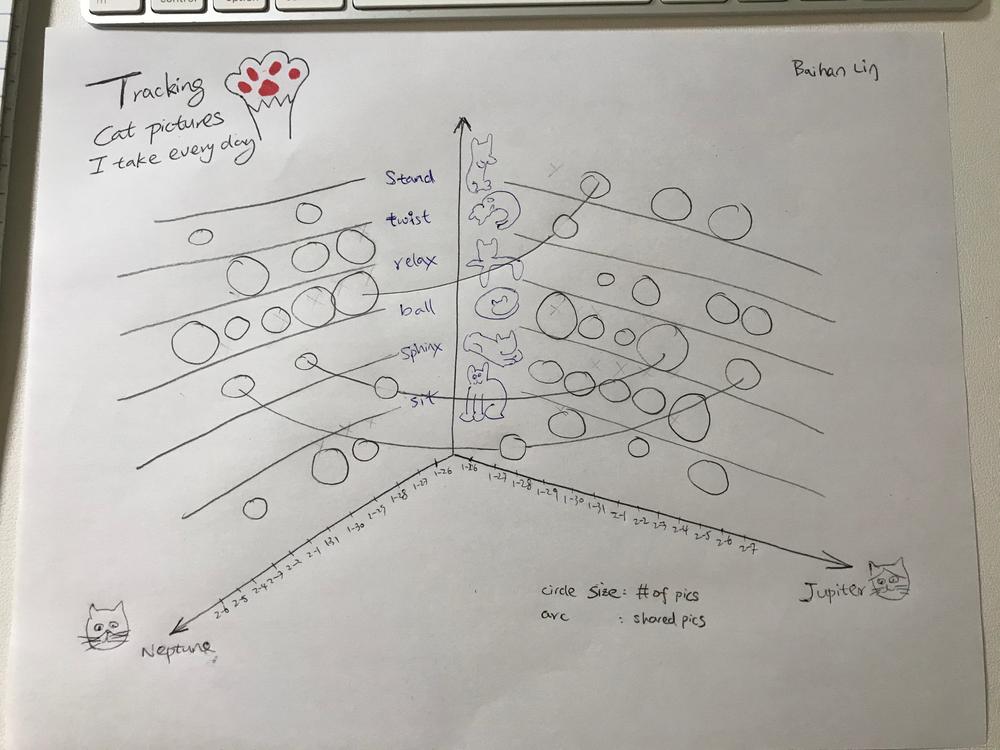 control
option
Tracking
Cat pictures
I take every day
Baihan Lin
Stand
twist
relax
ball
Sphinx
sit
1-26
1-27
1-28
1-29
1-30
1-31
2-1
2-2
2-3
2-4
2-5
2-6
1-26
1-27
1-28
1-29
1-30
1-31
2-1
2-2
2-3
2-4
2-5
2-6
2-7
Neptune
Jupiter
circle size: # of pics
arc : shared pics